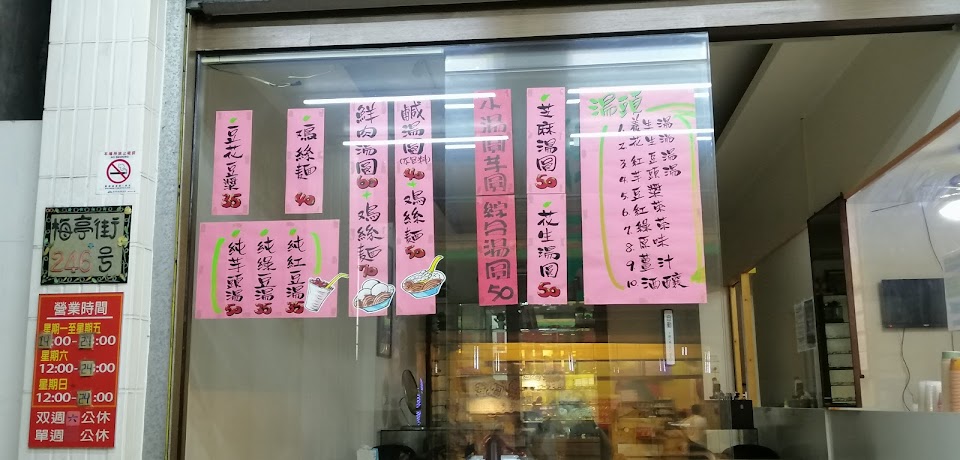 梅亭街
246号
營業時間
星期一至星期五
14:00-24:00
星期六
12:00-24:00
星期日
12:00-24:00
双週六公休
單週 公休
豆花豆漿 35
鷄絲麵 40
純芋頭湯 50
純綠豆湯 35
純紅豆湯 35
鮮肉湯圓 60
+鷄絲麵 70
鹹湯圓 40
+鷄絲麵 50
小湯圓芋圓綜合湯圓 50
芝麻湯圓 50
花生湯圓 50
湯頭
1.養生湯
2.花生湯
3.紅豆湯
4.芋頭湯
5.豆漿
6.紅茶
7.綠茶
8.原味
9.薑汁
10.酒釀